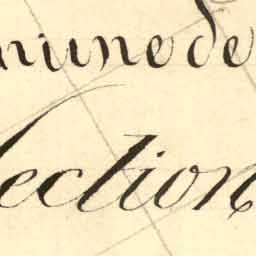 mune de
Section